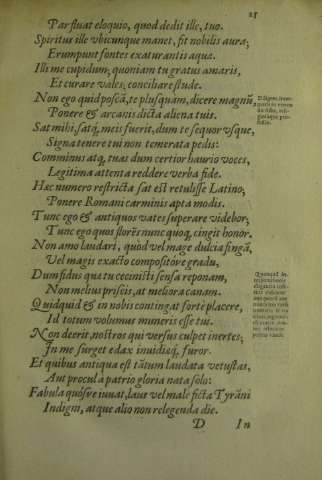 25
Par fluat eloquio, quod dedit ille, tuo.
Spiritus ille vbicunque manet, fit nobilis aura;
Erumpunt fontes exaturantis aquæ.
Illi me cupidum, quoniam tu gratus amaris,
Et curare vales, conciliare stude.
Non ego quid poscã, te plusquam, dicere magnũ
Ponere & arcanis dicta aliena tuis.
Sat mihi, satq́, meis fuerit, dum te sequor vsque,
Signa tenere tui non temerata pedis:
Comminus atq, tuas dum certior haurio voces,
Legitima attenta reddere verba fide.
Hæc numero restricta sat est retulisse Latino;
Ponere Romani carminis apta modis.
Tunc ego & antiquos vates superare videbor;
Tunc ego quos flores nunc quoq, cingit honor.
Non amo laudari, quod vel mage dulcia fingã,
Vel magis exacto compositore gradu,
Dum fidus quæ tu cecinisti sensa reponam,
Non melius priscis, at meliora canam.
Quidquid & in nobis contingat forte placere,
Id totum volumus muneris esse tui.
Non deerit, nostros qui versus culpet inertes;
In me surget edax inuidiæq, furor.
Et quibus antiqua est tãtum laudata vetustas,
Aut procul a patrio gloria nata solo:
Fabula quósve iuuat, laus vel male ficta Tyrãni
Indigni, atque alio non relegenda die.
D In